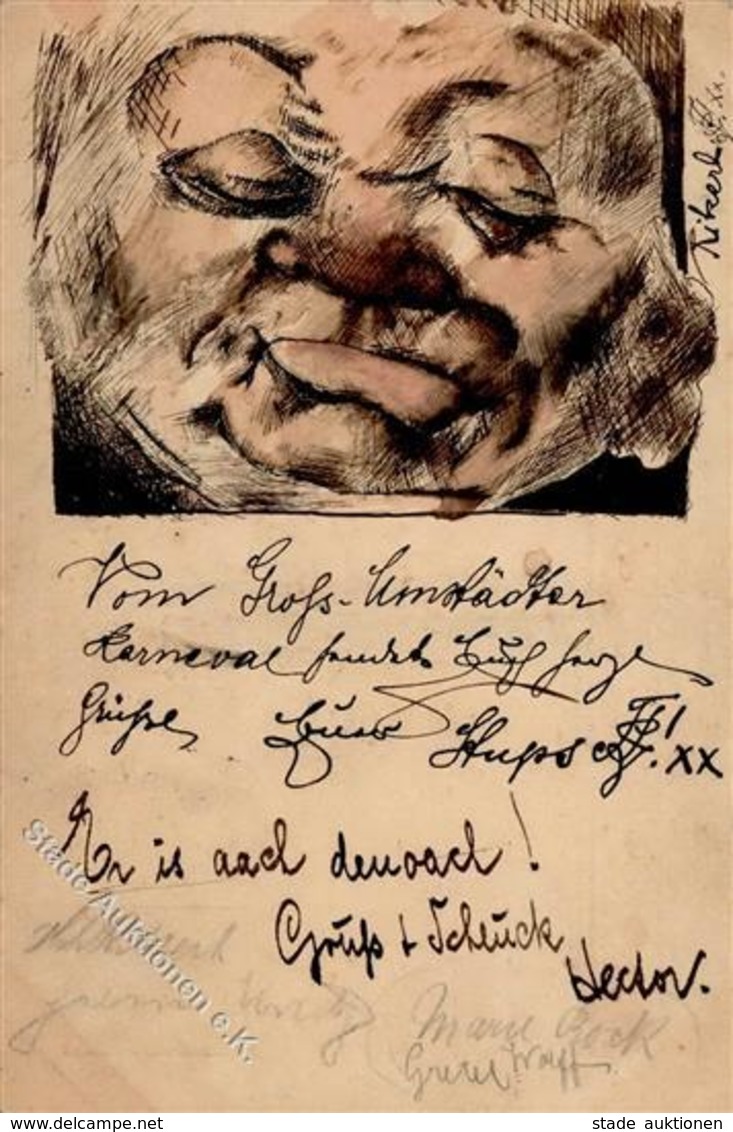 Vom Groß-Umstädter
Karneval sendet Euch herzl.
Grüße Euer Stups xx
Er is aach denoach!
Gruß + Schluck
Hector.
Marie Bock
Gretel Wolff.
Städe/Auktionen e.K.
delcampe.net
stade auktionen